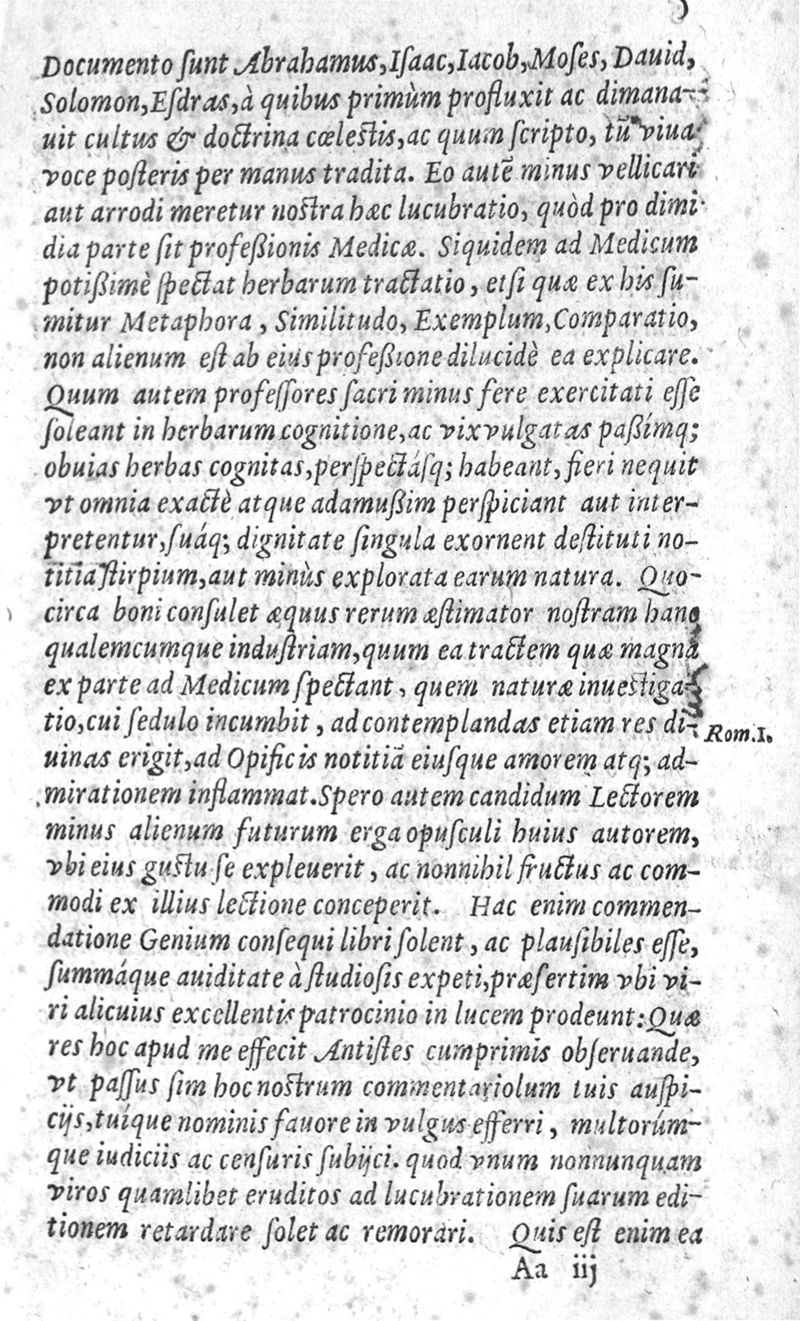 5
Documento ſunt Abrahamus, Iſaac, Iacob, Moſes, Dauid,
Solomon, Eſdras, à quibus primùm profluxit ac dimana-
uit cultus & doctrina cœleſtis, ac quum ſcripto, tū viua
voce poſteris per manus tradita. Eo autē minus vellicari
aut arrodi meretur noſtra hæc lucubratio, quòd pro dimi
dia parte ſit profeßionis Medicæ. Siquidem ad Medicum
potißimè ſpectat herbarum tractatio, etſi quæ ex his ſu-
mitur Metaphora, Similitudo, Exemplum, Comparatio,
non alienum eſt ab eius profeßione dilucidè ea explicare.
Quum autem profeſſores ſacri minus fere exercitati eſſe
ſoleant in herbarum cognitione, ac vix vulgatas paßímq;
obuias herbas cognitas, perſpectáſq; habeant, fieri nequit
vt omnia exactè atque adamußim perſpiciant aut inter-
pretentur, ſuáq; dignitate ſingula exornent deſtituti no-
titia ſtirpium, aut minùs explorata earum natura. Quo-
circa boni conſulet æquus rerum æſtimator noſtram hanc
qualemcumque induſtriam, quum ea tractem quæ magna
ex parte ad Medicum ſpectant, quem naturæ inueſtiga-
tio, cui ſedulo incumbit, ad contemplandas etiam res di-
Rom.1.
uinas erigit, ad Opificis notitiā eiuſque amorem atq; ad-
mirationem inflammat. Spero autem candidum Lectorem
minus alienum futurum erga opuſculi huius autorem,
vbi eius guſtu ſe expleuerit, ac nonnihil fructus ac com-
modi ex illius lectione conceperit. Hac enim commen-
datione Genium conſequi libri ſolent, ac plauſibiles eſſe,
ſummáque auiditate à ſtudioſis expeti, præſertim vbi vi-
ri alicuius excellentis patrocinio in lucem prodeunt: Quæ
res hoc apud me effecit Antiſtes cumprimis obſeruande,
vt paſſus ſim hoc noſtrum commentariolum tuis auſpi-
cijs, tuíque nominis fauore in vulgus efferri, multorúm-
que iudiciis ac cenſuris ſubijci. quod vnum nonnunquam
viros quamlibet eruditos ad lucubrationem ſuarum edi-
tionem retardare ſolet ac remorari. Quis eſt enim ea
Aa iij